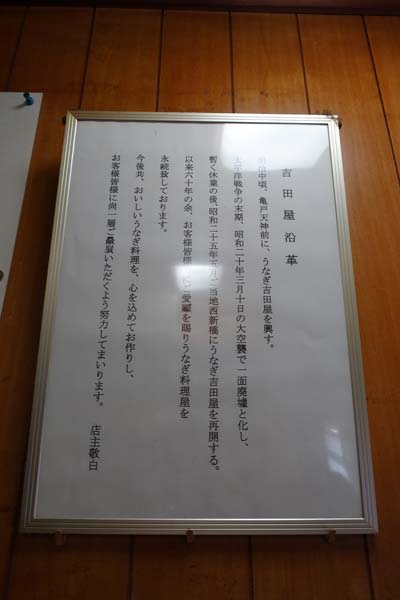 吉田屋沿革
中頃、亀戸天神前に、うなぎ吉田屋を興す。
太平洋戦争の末期、昭和二十年三月十日の大空襲で一面廃墟と化し、
暫く休業の後、昭和二十五年五月、当地西新橋にうなぎ吉田屋を再開する。
以来六十年の余、お客様皆様のご愛顧を賜りうなぎ料理屋を
永続致しております。
今後共、おいしいうなぎ料理を、心を込めてお作りし、
お客様皆様に尚一層ご贔屓いただくよう努力してまいります。
店主敬白